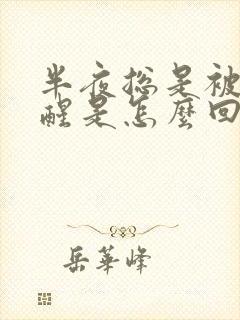 半夜總是被
醒是怎麼回
岳華峰